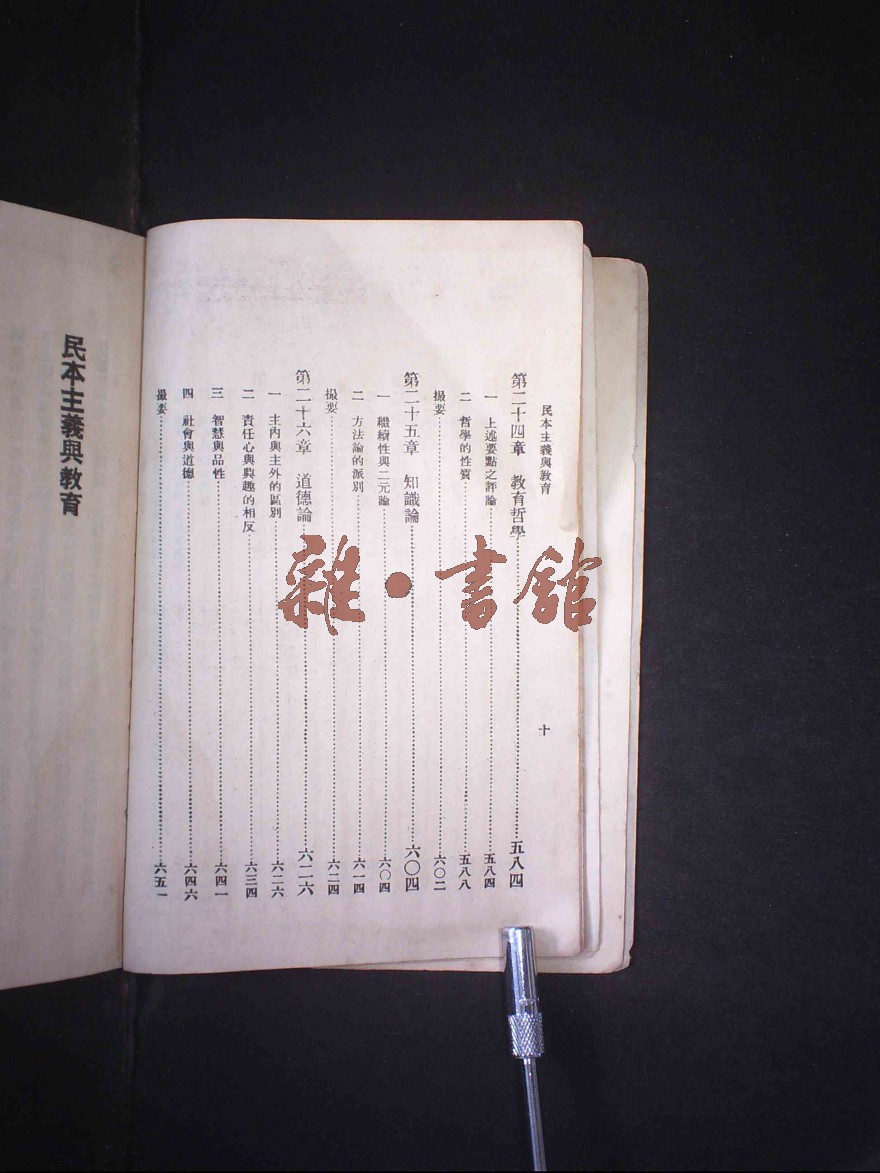 民本主義與教育
十
第二十四章　教育哲學……五八四
一　上述要點之評論……五八四
二　哲學的性質……五八八
撮要……六〇二
第二十五章　知識論……六〇四
一　繼續性與二元論……六〇四
二　方法論的派別……六一四
撮要……六二四
第二十六章　道德論……六二六
一　主內與主外的區別……六二六
二　責任心與興趣的相反……六三四
三　智慧與品性……六四一
四　社會與道德……六四六
撮要……六五一
民本主義與教育
雜·書館